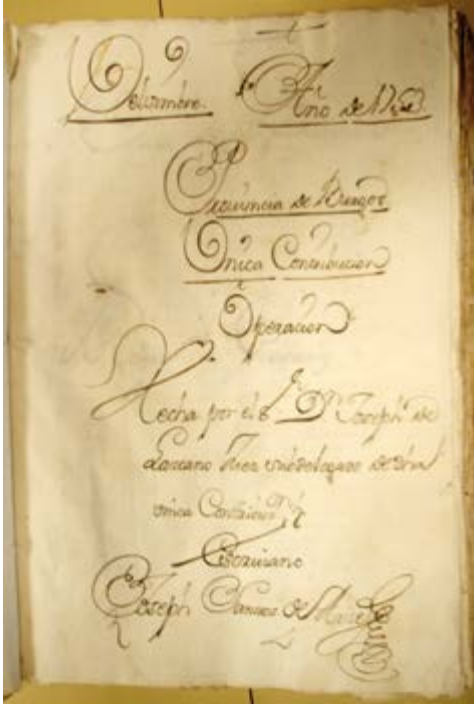 Diciembre. Año de
Provincia de Burgos
Única Contribucion
Operacion
Hecha por el S.r D.n Joseph de
Lazcano Juez subdelegado de dha
unica Contribución y
Escrivano
Joseph de